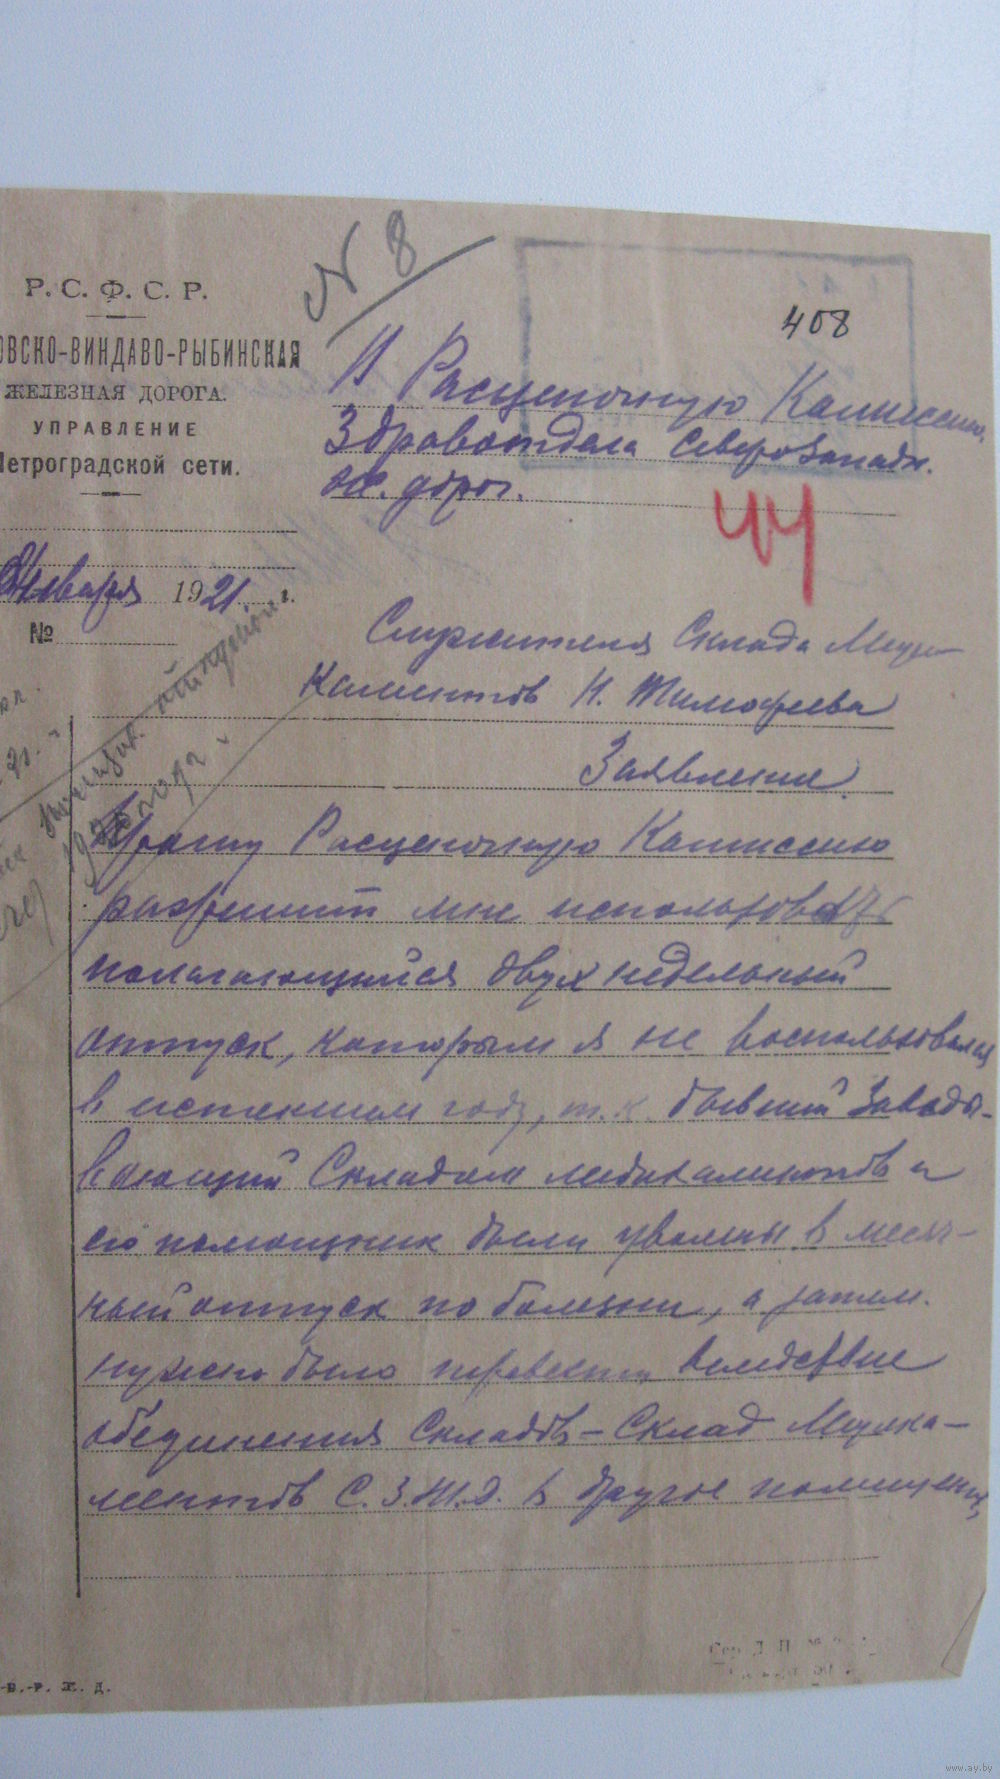 № 8
408
Р. С. Ф. С. Р.
ОВСКО-ВИНДАВО-РЫБИНСКАЯ
ЖЕЛЕЗНАЯ ДОРОГА.
УПРАВЛЕНИЕ
Петроградской сети.
Января 1921 г.
№
В Расценочную Комиссию
Здравотдела Северо Западн.
жел. дорог.
44
Служителя Склада Меди-
каментов Н. Тимофеева
Заявление.
Прошу Расценочную Комиссию
разрешить мне использовать
полагающийся двух недельный
отпуск, которым я не воспользовался
в истекшем году, т.к. бывший Заведы-
вающий Складом медикаментов и
его помощник были уволены в месяч-
ный отпуск по болезни, а затем
нужно было перевести вследствие
объединения Складов – Склад Медика-
ментов С.З.Ж.Д. в другое помещение,
-В.-Р. Ж. Д.
www.ay.by